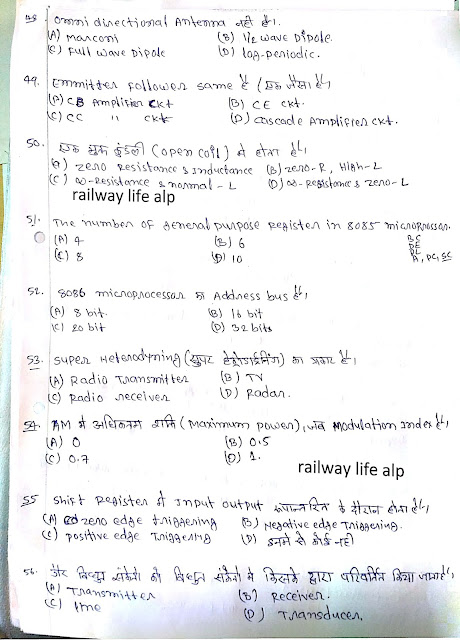 48. Omni directional Antenna नही है।
(A) Marconi (B) 1/2 wave Dipole.
(C) Full wave Dipole (D) log-periodic.
49. Emmitter follower same है (एक जैसा है)
(A) CB Amplifier ckt (B) CE ckt.
(C) CC " ckt (D) cascade Amplifier ckt.
50. एक खुला कुंडली (open coil) में होता है।
(A) zero resistance & inductance (B) zero-R, High-L
(C) ∞-resistance & normal-L (D) ∞-resistance & zero-L
railway life alp
51. The number of general purpose Register in 8085 microprossor.
(A) 4 (B) 6
(C) 8 (D) 10
BC
DE
HL
A, PC,
52. 8086 microprocessor का Address bus है।
(A) 8 bit. (B) 16 bit
(C) 20 bit (D) 32 bits
53. super Heterodyning (सुपर हेट्रोडाईनिंग) का प्रकार है।
(A) Radio Transmitter (B) TV
(C) Radio receiver (D) Radar.
54. AM में अधिकतम शक्ति (maximum power), जब modulation index है।
(A) 0 (B) 0.5
(C) 0.7 (D) 1.
railway life alp
55 shift Register में Input output रूपान्तरित के दौरान होता है।
(A) zero edge triggering (B) Negative edge Triggering.
(C) positive edge Triggering (D) इनमें से कोई नही
56. गैर विद्युत संकेतो को विद्युत संकेतो में किसके द्वारा परिवर्तित किया जाता है।
(A) Transmitter (B) Receiver.
(C) (D) Transducer.